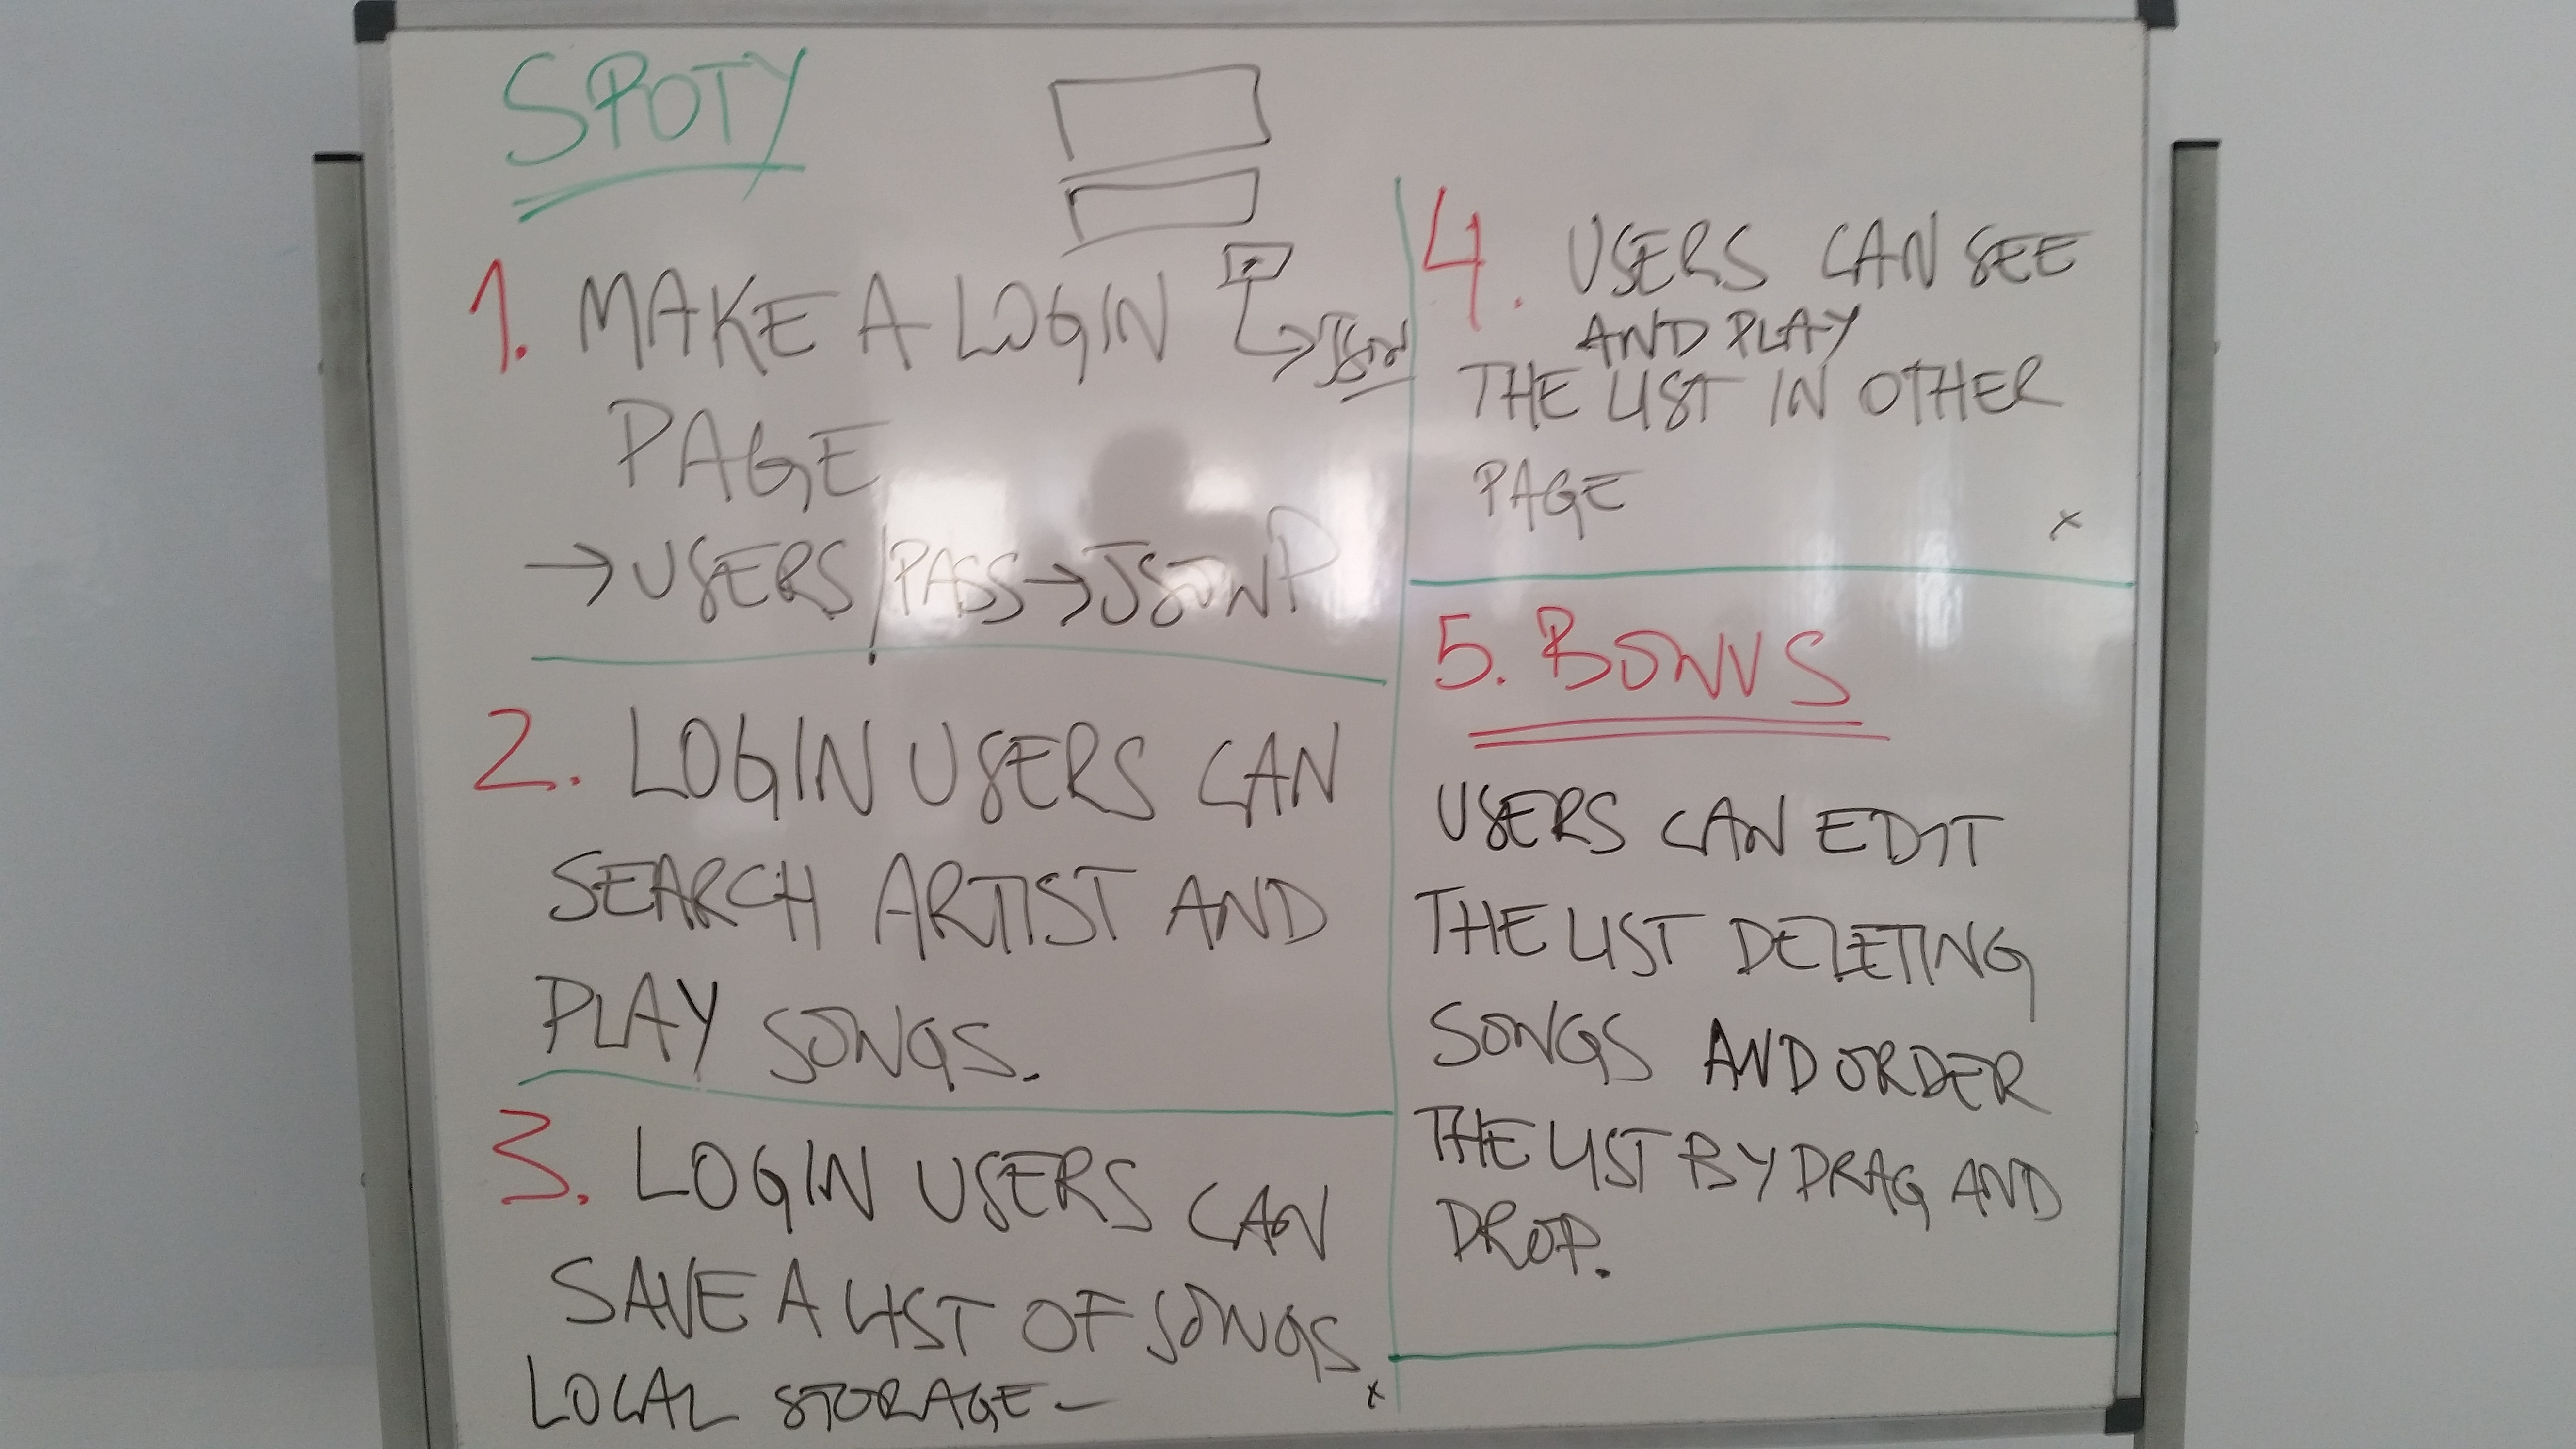 SPOTY
1. MAKE A LOGIN
JSON
PAGE
→ USERS/PASS → JSONP
2. LOGIN USERS CAN
SEARCH ARTIST AND
PLAY SONGS.
3. LOGIN USERS CAN
SAVE A LIST OF SONGS
LOCAL STORAGE - x
4. USERS CAN SEE
AND PLAY
THE LIST IN OTHER
PAGE
x
5. BONUS
USERS CAN EDIT
THE LIST DELETING
SONGS AND ORDER
THE LIST BY DRAG AND
DROP.